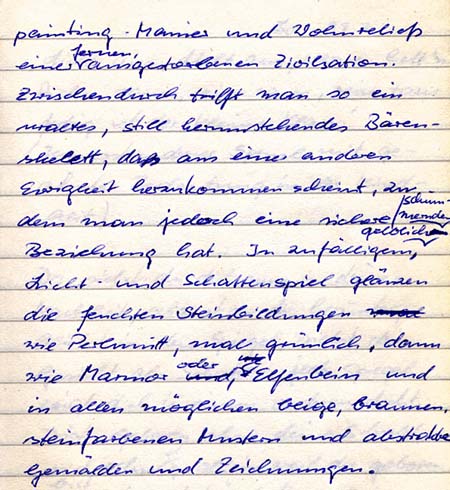 painting-Manier und Wohnreliefs
einer fernen, ausgestorbenen Zivilsation.
Zwischendurch trifft man so ein
uraltes, still herumstehendes Bären-
skelett, das aus einer anderen
Ewigkeit herzukommen scheint, zu
dem man jedoch eine sichere
Beziehung hat. In zufälligem, schummernden gelblichen
Licht- und Schattenspiel glänzen
die feuchten Steinbildungen
wie Perlmutt, mal grünlich, dann
wie Marmor oder Elfenbein und
in allen möglichen beige, braunen,
steinfarbenen Mustern und abstrakten
Gemälden und Zeichnungen.